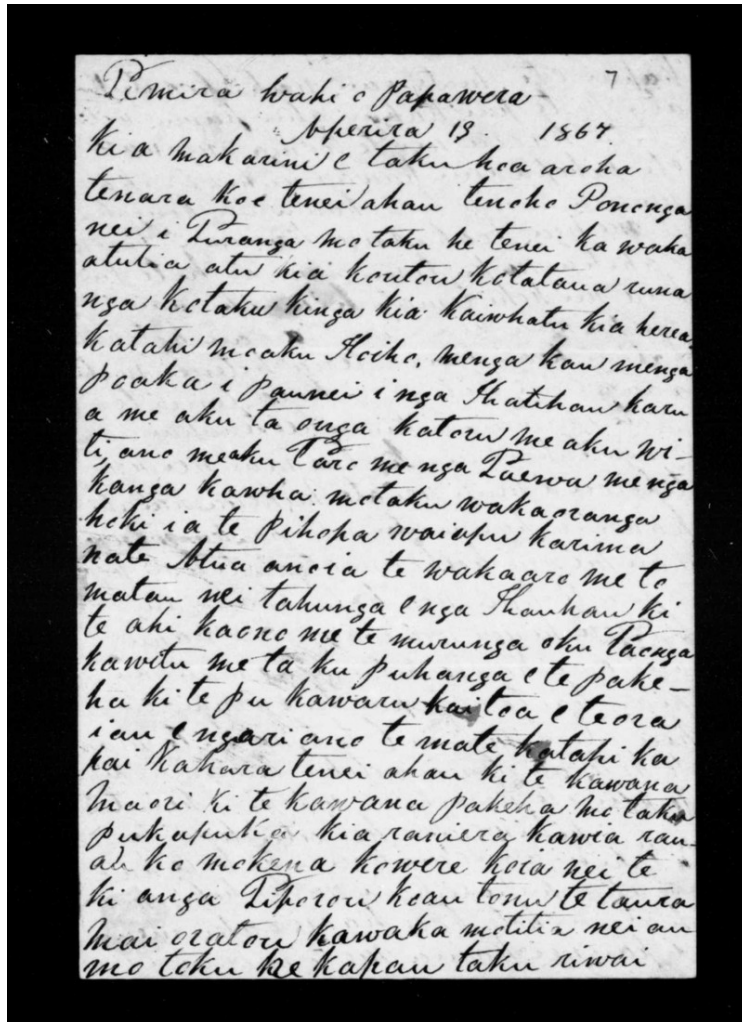 7
Pimira Wahi o Papawera
Aperira 19. 1867.
Kia makarini e taku hoa aroha
tenara koe tenei ahau tenoho Pononga
nei i Turanga mo taku he tenei ka waka
atutia atu kia koutou kotatana runa
nga kotaku kinga kia Kaiwhatu kia herea,
katahi meaku Hoiho, menga kau menga
poaka i paunei i nga Ihatihau karu
a me aku ta onga katoru me aku wi-
ti, ano meaku Taro me nga Taewa me nga
kanga kawha motaku wakaoranga
hoki ia te pihopa waiapu karima
nate Atua anoia te wakaaro me to
matau nei tahunga e nga Ihauhau ki
te ahi kaono me te murunga oku Taonga
kawitu me ta ku puhanga e te pake-
ha ki te pu kawaru kai toa e te ora
i au e ngari ano te mate katahi ka
pai kahara tenei ahau ki te kawana
maori ki te kawana pakeha mo taku
pukapuka kia raniera kawia rau-
ko mokena kowere kora nei te
ki anga Tiporou koau tonu te taura
mai oratou kawaka motitia nei au
mo toku he kapau taku riwai